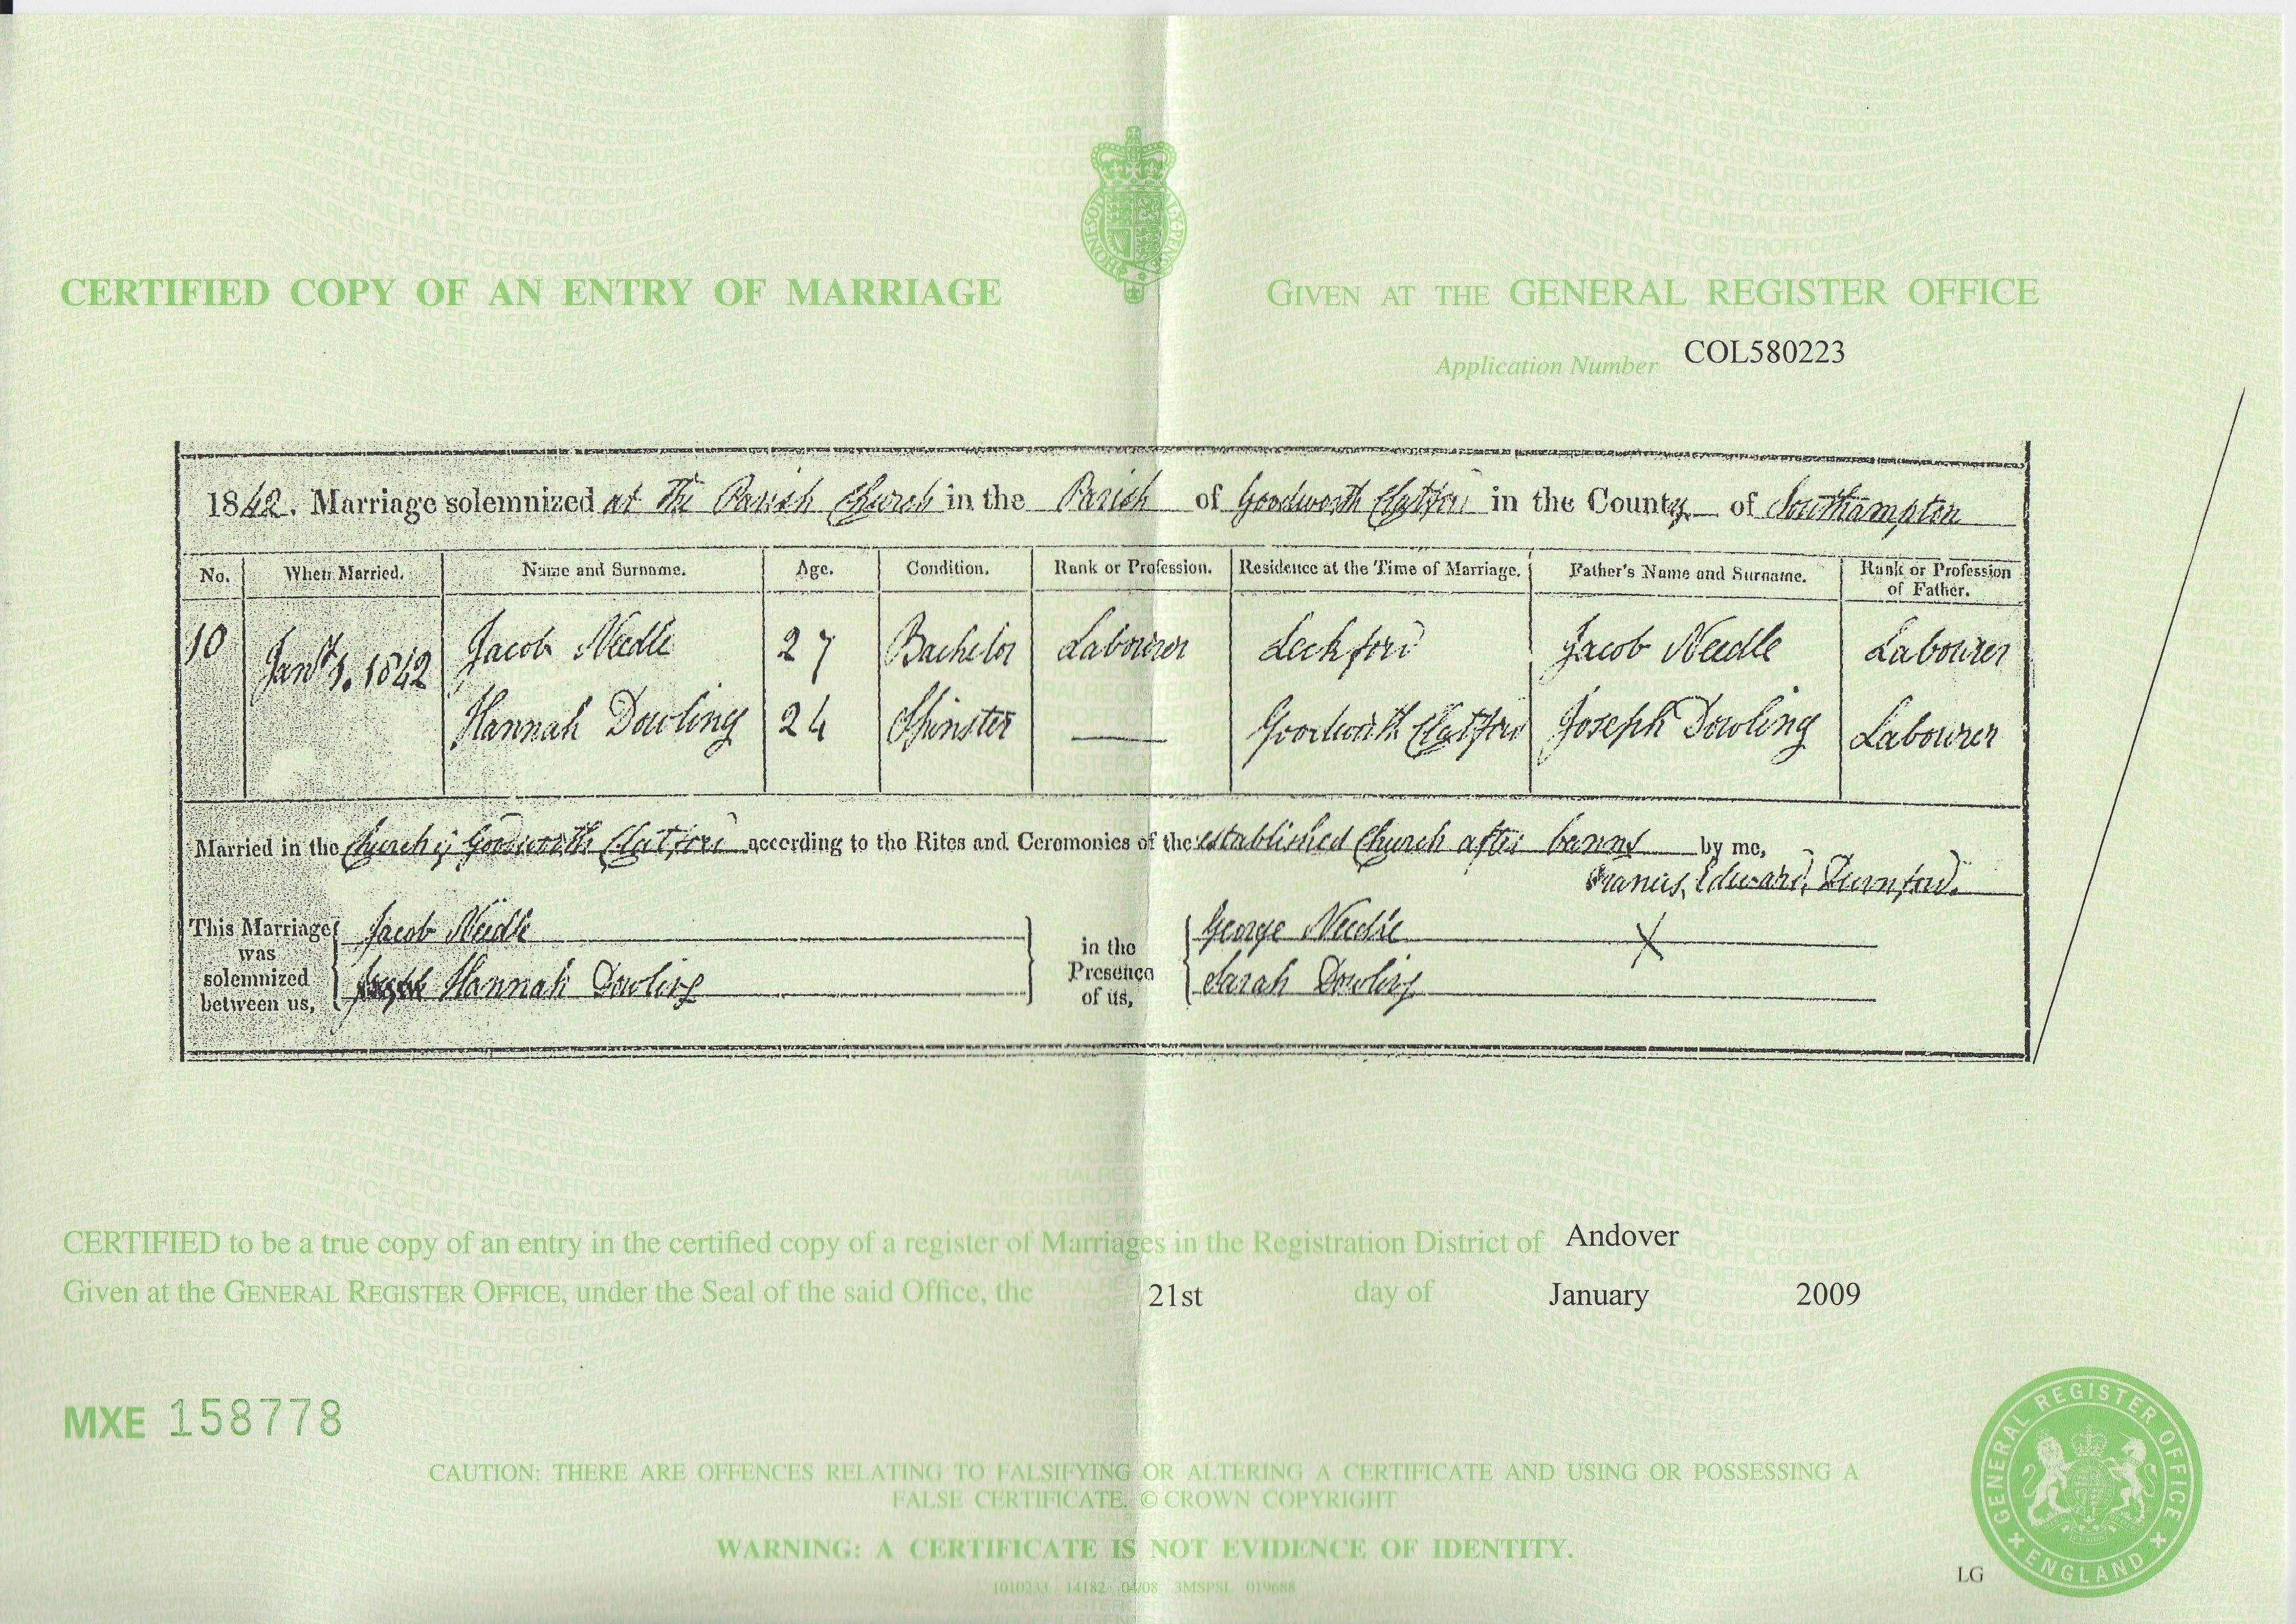 CERTIFIED COPY OF AN ENTRY OF MARRIAGE
GIVEN AT THE GENERAL REGISTER OFFICE
Application Number COL580223
1842. Marriage solemnized at The Parish Church in the Parish of Goodworth Clatford in the County of Southampton
No. When Married. Name and Surname. Age. Condition. Rank or Profession. Residence at the Time of Marriage. Father's Name and Surname. Rank or Profession of Father.
10 Jany 1. 1842 Jacob Needle 27 Bachelor Labourer Leckford Jacob Needle Labourer
Hannah Dowling 24 Spinster — Goodworth Clatford Joseph Dowling Labourer
Married in the Church of Goodworth Clatford according to the Rites and Ceremonies of the established Church after banns by me,
Francis Edward Durnford.
This Marriage was solemnized between us,
Jacob Needle
Hannah Dowling
in the Presence of us,
George Needle X
Sarah Dowling
CERTIFIED to be a true copy of an entry in the certified copy of a register of Marriages in the Registration District of Andover
Given at the GENERAL REGISTER OFFICE, under the Seal of the said Office, the 21st day of January 2009
MXE 158778
CAUTION: THERE ARE OFFENCES RELATING TO FALSIFYING OR ALTERING A CERTIFICATE AND USING OR POSSESSING A
FALSE CERTIFICATE. © CROWN COPYRIGHT
WARNING: A CERTIFICATE IS NOT EVIDENCE OF IDENTITY.
1010233 14182 04/08 3MSPSL 019688
LG
GENERAL REGISTER OFFICE
ENGLAND